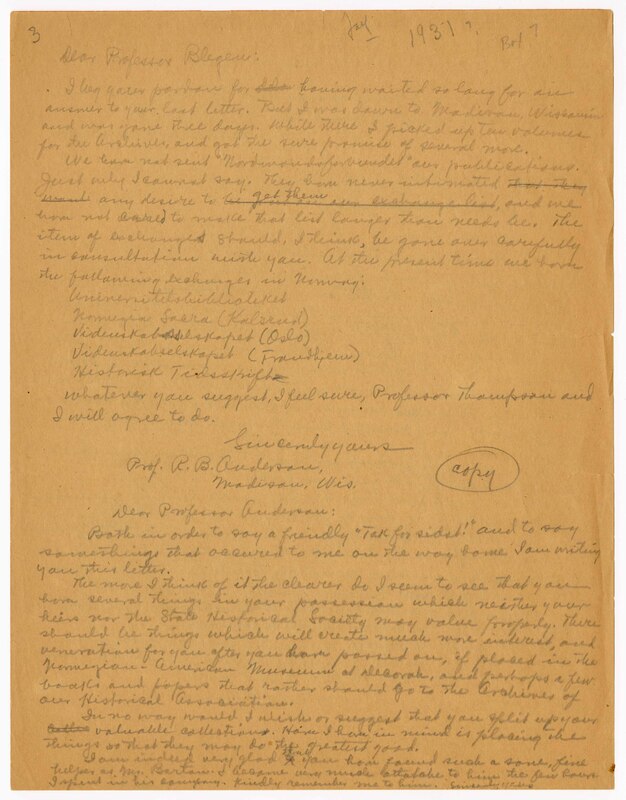 3
1931?
Bot?
Dear Professor Blegen:
I beg your pardon for having waited so long for an
answer to your last letter. But I was down to Madison, Wisconsin
and was gone three days. While there I picked up ten volumes
for the Archives and got the sure promise of several more.
We have not sent "Nordmandsforbundet" our publications.
Just why I cannot say. They have never intimated that they
want any desire to get them our exchange list, and we
have not cared to make that list longer than needs be. The
item of exchanges should, I think, be gone over carefully
in consultation with you. At the present time we have
the following exchanges in Norway:
Universitetsbiblioteket
Norvegia Sacra (Kolsrud)
Videnskabsselskapet (Oslo)
Videnskabsselskapet (Trondhjem)
Historisk Tidsskrift
Whatever you suggest, I feel sure, Professor Thompson and
I will agree to do.
Sincerely yours
Prof. R. B. Anderson,
Madison, Wis.
copy
Dear Professor Anderson:
Both in order to say a friendly "Tak for sidst!" and to say
somethings that occured to me on the way home I am writing
you this letter.
The more I think of it the clearer do I seem to see that you
have several things in your possession which neither your
heirs nor the State Historical Society may value properly. There
should be things which will create much more interest, and
veneration for you after you have passed on, if placed in the
Norwegian-American Museum at Decorah, and perhaps a few
books and papers that rather should go to the Archives of
our Historical Association.
In no way would I wish or suggest that you split up your
valuable collections. How I have in mind is placing the
things so that they may do the greatest good.
I am indeed very glad that you have found such a fine
helper as Mr. Barton. I became very much attached to him the few hours
I spent in his company. Kindly remember me to him. Sincerely yours